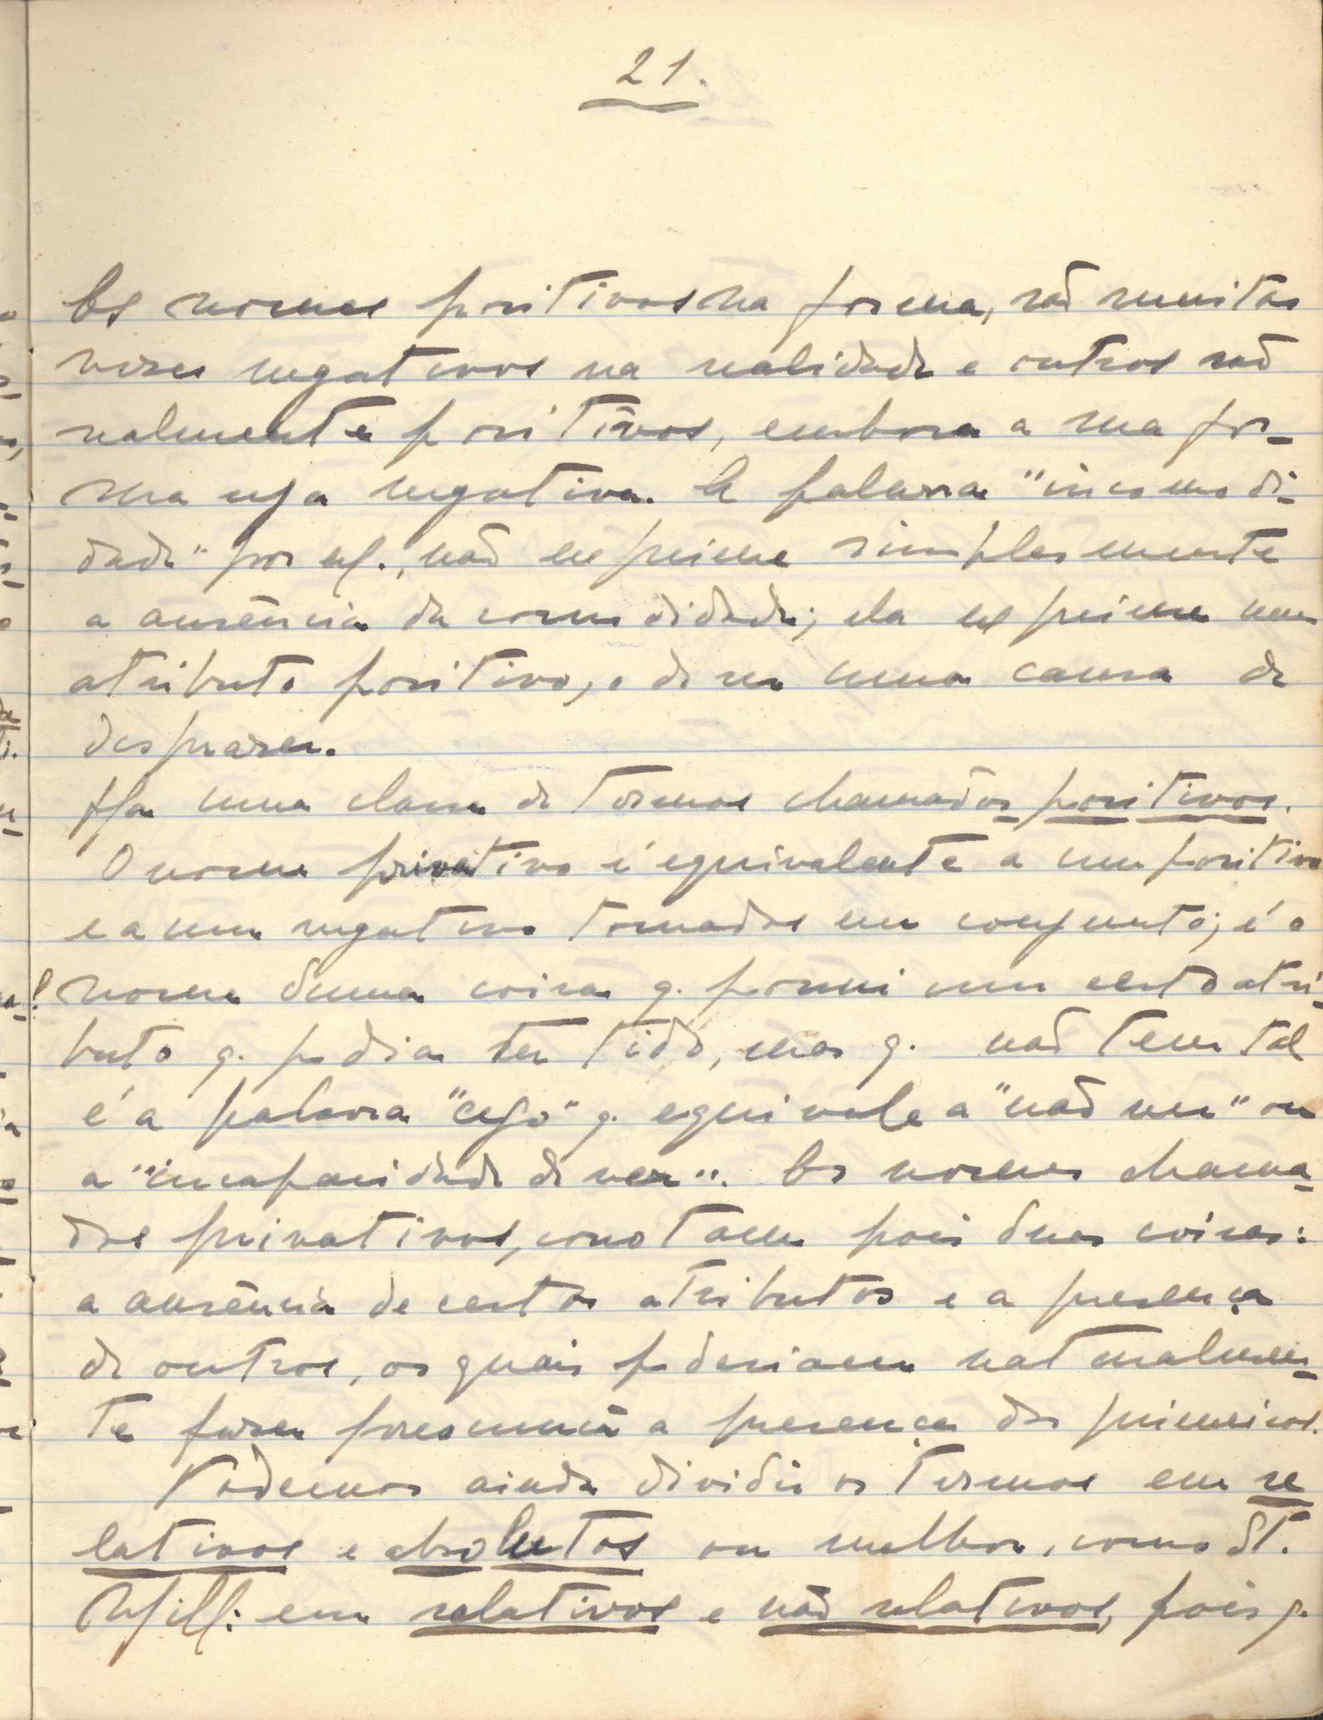 21.
Os nomes positivos na forma, são muitas
vezes negativos na realidade e outros são
realmente positivos, embora a sua for-
ma seja negativa. A palavra "incomodi-
dade" por ex., não exprime simplesmente
a ausência da comodidade; ela exprime um
atributo positivo, o de ser uma causa de
desprazer.
Ha uma classe de termos chamados positivos.
O nome privativo é equivalente a um positivo
e a um negativo tomados em conjunto; é o
nome duma coisa q. possui um certo atri-
buto q. podia ter tido, mas q. não tem tal
é a palavra "cego" q. equivale a "não ver" ou
a "incapacidade de ver". Os nomes chama-
dos privativos, conotam pois duas coisas:
a ausência de certos atributos e a presença
de outros, os quais poderiam naturalmen-
te fazer presumir a presença dos primeiros.
Podemos ainda dividir os termos em re
lativos e absolutos ou melhor, como St.
Mill: em relativos e não relativos, pois q.